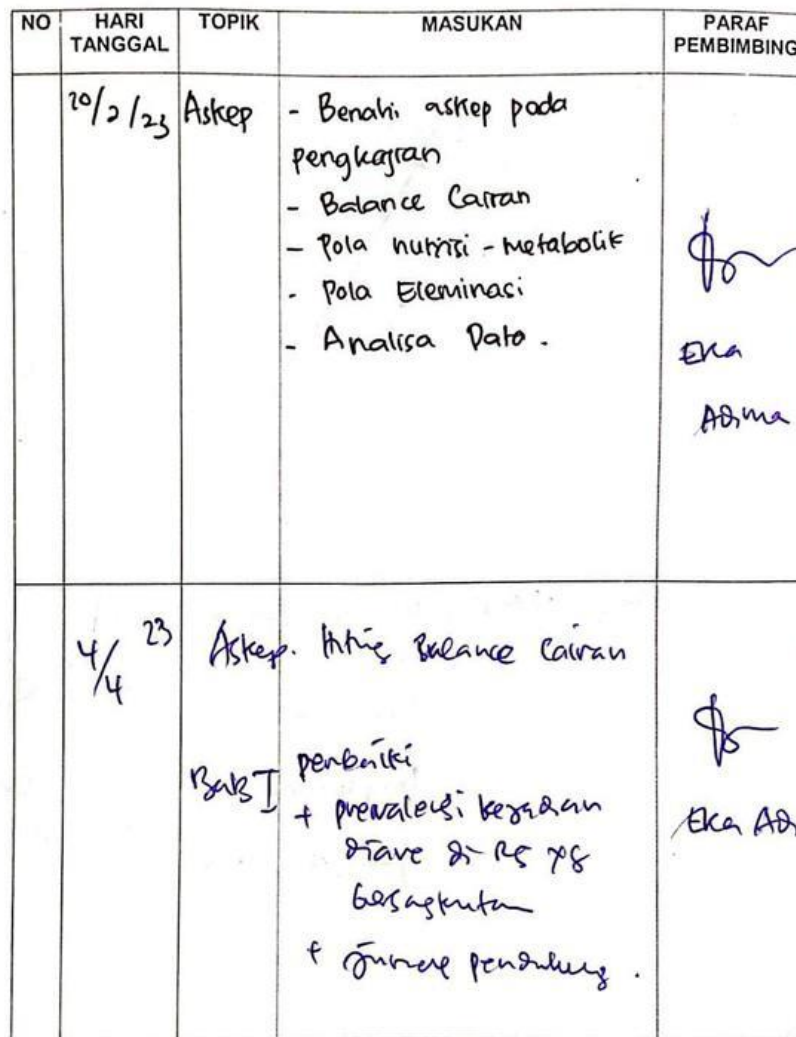 NO HARI TANGGAL TOPIK MASUKAN PARAF PEMBIMBING
20/2/23 Askep - Benahi askep pada
pengkajian
- Balance Cairan
- Pola nutrisi - metabolik
- Pola Eleminasi
- Analisa Data .
Eka
4/4 23 Askep. Hitung Balance Cairan
BAB I perbaiki
+ prevalensi kejadian
diare di RS yg
bersangkutan
+ jurnal pendukung .
Eka